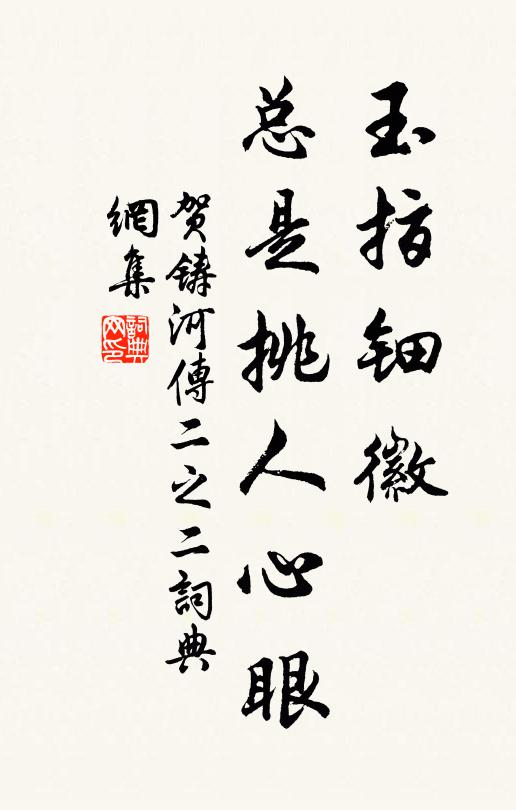 玉指钿徽
总是挑人心眼
贺鑄河傳二之二詞典
網集
詞典
网印